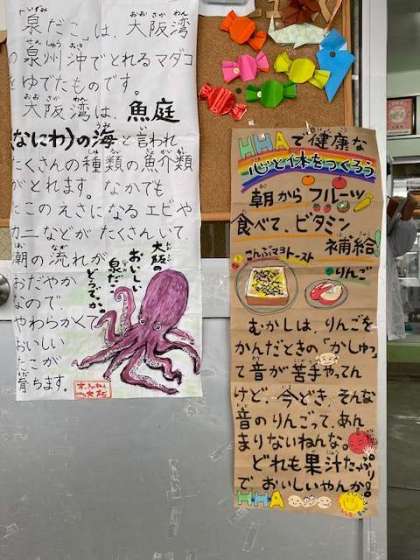 泉だこは、大阪湾
の泉州沖でとれるマダコ
をゆでたものです。
大阪湾は、魚庭
(なにわ)の海と言われ
たくさんの種類の魚介類
がとれます。なかでも
たこのえさになるエビや
カニなどがたくさんいて
潮の流れが
おだやか
なので
やわらかくて
おいしい
たこが
育ちます。
大阪の
おいしい
泉だこ
どうぞ。
HHAで健康な
心と体をつくろう
朝からフルーツ
食べて、ビタミン
補給
こんぶマヨトースト
りんご
むかしは、りんごを
かんだときの「かしゅっ」
て音が苦手やってん
けど、今どき、そんな
音のりんごって、あん
まりないねんな。
どれも果汁たっぷり
で、おいしいやんか。
HHA